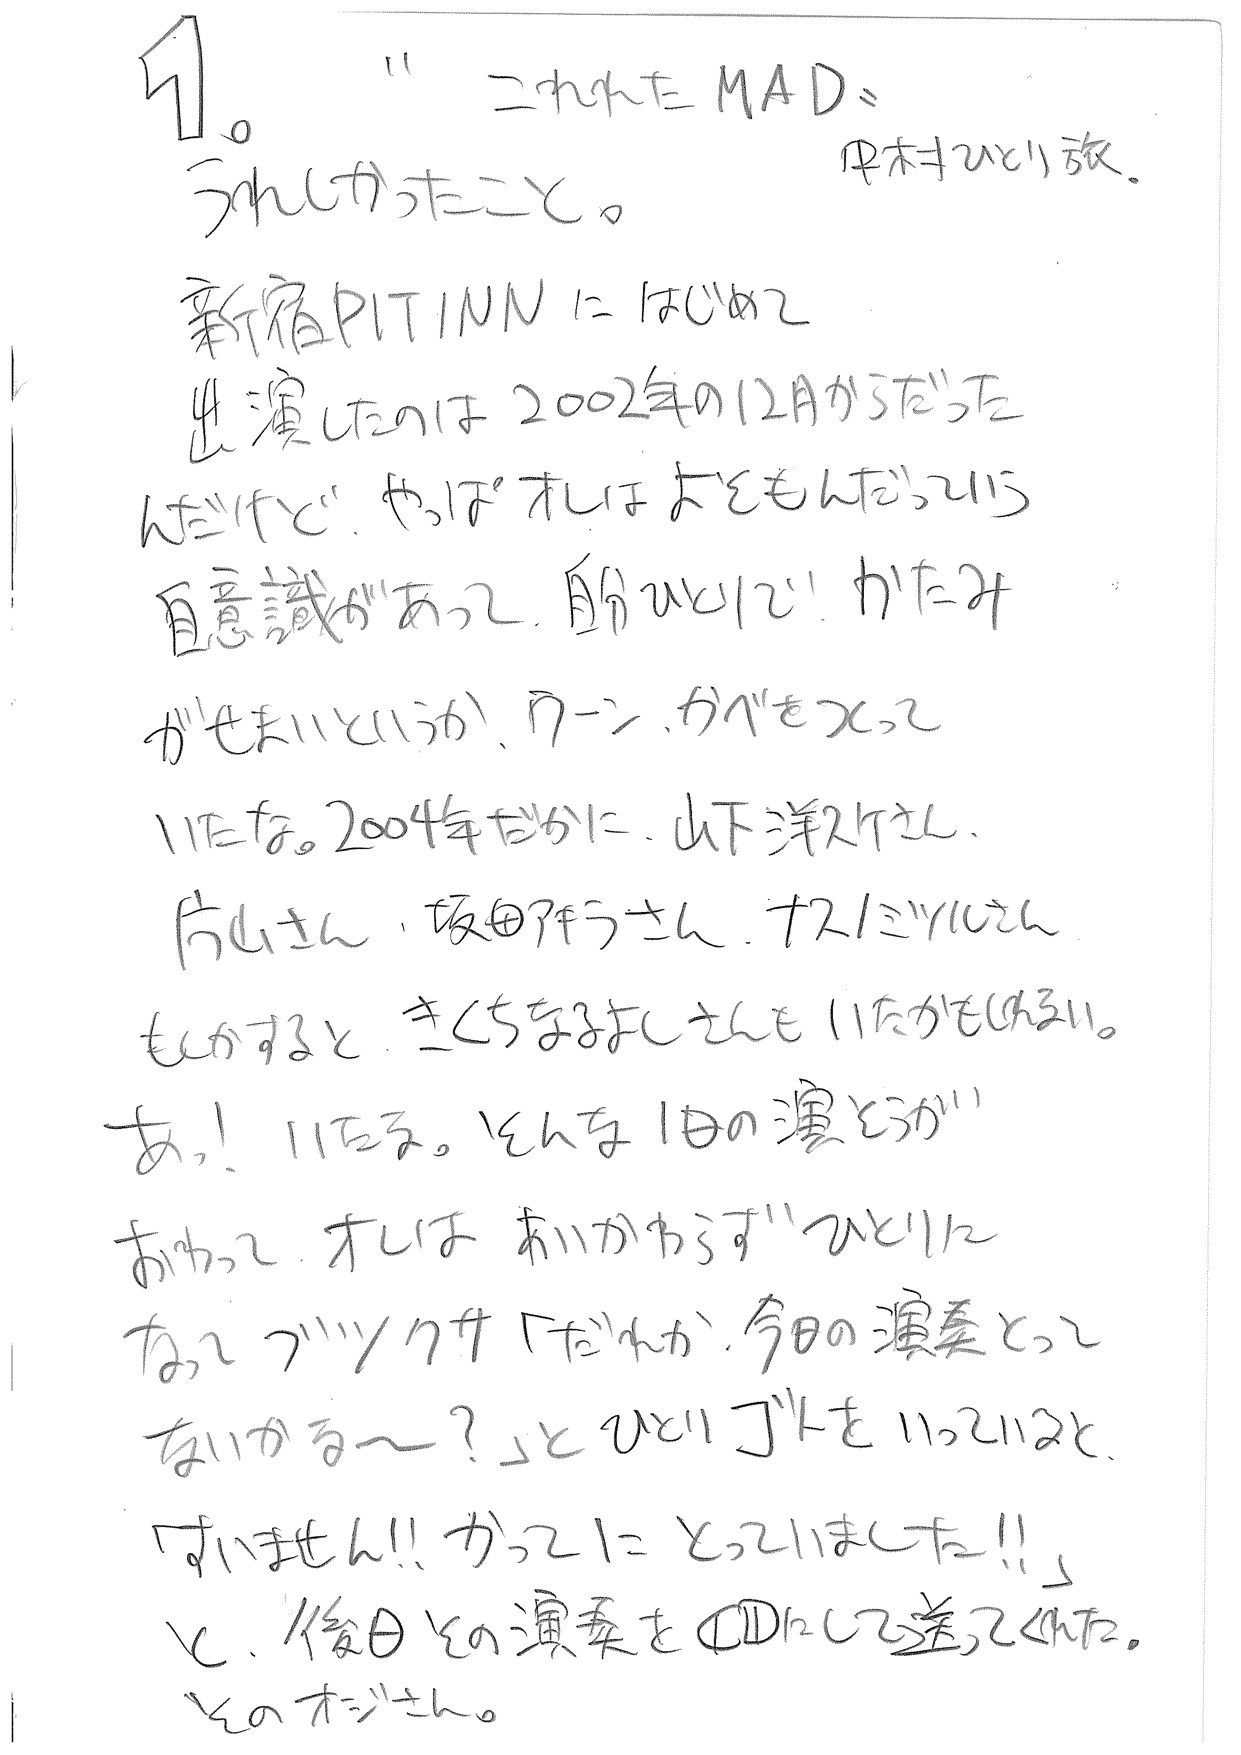 1。
" こわれた MAD〟
中村ひとり旅.
うれしかったこと。
新宿PIT INN に はじめて
出演したのは 2002年の12月からだった
んだけど、やっぱ オレは よそもんだっていう
自意識があって、自分ひとりで かたみ
がせまいというか、ウーン、かべをつくって
いたな。2004年だかに、山下洋スケさん、
片山さん、坂田アキラさん、ナスノミツルさん
もしかすると、きくちなるよしさんも いたかもしれない。
あっ! いたな。そんな 1日の 演そうが
おわって、オレは あいかわらず ひとりに
なって ブツクサ「だれか、今日の演奏とって
ないかな〜?」と ひとりゴトを いっていると、
「すいません!! かってに とっていました!!」
と、後日その演奏を CDにして送ってくれた。
そのオジさん。